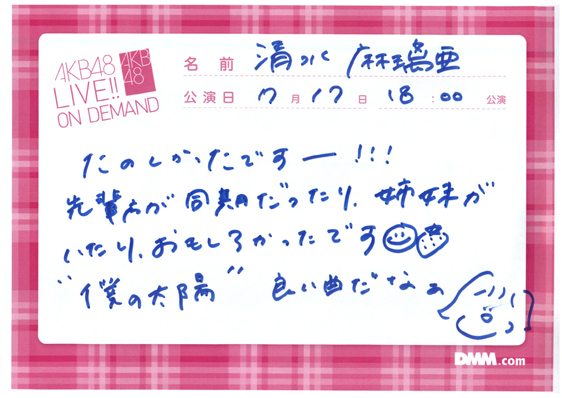 AKB48
LIVE!!
ON DEMAND
AKB
48
名前 清水 麻璃亜
公演日 7月17日 18:00 公演
たのしかったですー!!!
先輩方が同期だったり、姉妹が
いたり、おもしろかったです
"僕の太陽" 良い曲だなぁ
DMM.com